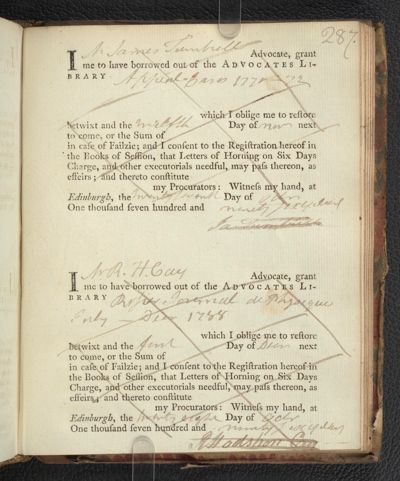 287.
I Mr James Turnbull Advocate, grant
me to have borrowed out of the ADVOCATES LI-
BRARY Appeal Cases 1770-72
which I oblige me to reſtore
betwixt and the twelfth Day of Novr next
to come, or the Sum of
in caſe of Failzie; and I conſent to the Regiſtration hereof in
the Books of Seſſion, that Letters of Horning on Six Days
Charge, and other executorials needful, may paſs thereon, as
effeirs; and thereto conſtitute
my Procurators: Witneſs my hand, at
Edinburgh, the Day of
One thouſand ſeven hundred and ninety
Ja Turnbull
I Mr R. H. Cay Advocate, grant
me to have borrowed out of the ADVOCATES LI-
BRARY Rozier Journal de Physique
July Decr 1788
which I oblige me to reſtore
betwixt and the Day of next
to come, or the Sum of
in caſe of Failzie; and I conſent to the Regiſtration hereof in
the Books of Seſſion, that Letters of Horning on Six Days
Charge, and other executorials needful, may paſs thereon, as
effeirs; and thereto conſtitute
my Procurators: Witneſs my hand, at
Edinburgh, the Day of Octr
One thouſand ſeven hundred and ninety
R Hodshon Cay